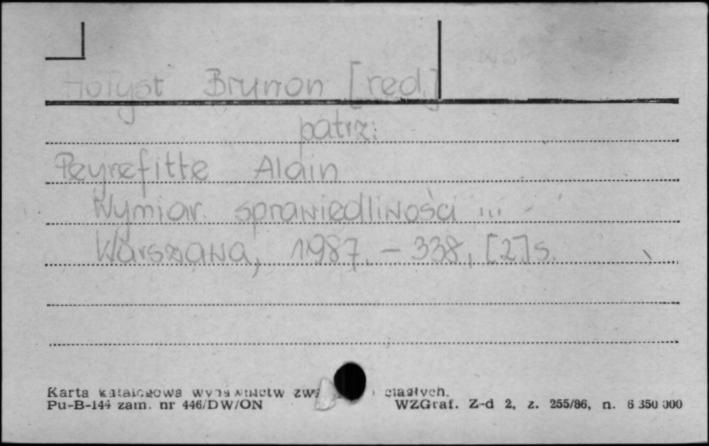 Hołyst Brunon [red.]
patrz:
Peyrefitte Alain
Wymiar sprawiedliwości ...
Warszawa, 1987. – 338, [2] s.
Karta katalogowa wydawnictw ciągłych.
Pu-B-144 zam. nr 446/DW/ON WZGraf. Z-d 2, z. 255/86, n. 6 350 000